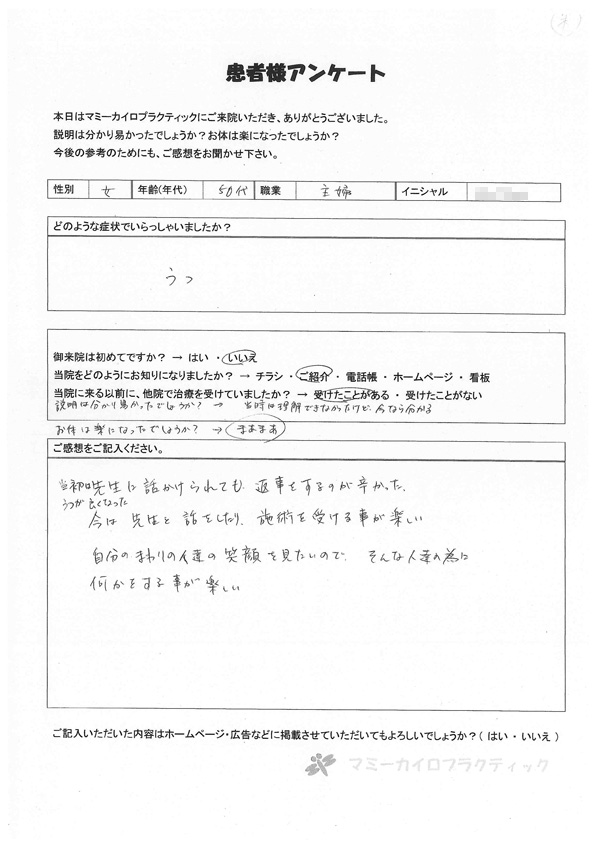 患者様アンケート
本日はマミーカイロプラクティックにご来院いただき、ありがとうございました。
説明は分かり易かったでしょうか？お体は楽になったでしょうか？
今後の参考のためにも、ご感想をお聞かせ下さい。
性別 女 年齢(年代) 50代 職業 主婦 イニシャル
どのような症状でいらっしゃいましたか？
うつ
御来院は初めてですか？ → はい ・ いいえ
当院をどのようにお知りになりましたか？ → チラシ ・ ご紹介 ・ 電話帳 ・ ホームページ ・ 看板
当院に来る以前に、他院で治療を受けていましたか？ → 受けたことがある ・ 受けたことがない
説明は分かり易かったでしょうか？ → 当時は理解できなかったけど、今なら分かる
お体は楽になったでしょうか？ → まあまあ
ご感想をご記入ください。
当初は先生に話かけられても、返事をするのが辛かった、
うつが良くなった
今は先生と話をしたり、施術を受ける事が楽しい
自分のまわりの人達の笑顔を見たいので、そんな人達の為に
何かをする事が楽しい
ご記入いただいた内容はホームページ・広告などに掲載させていただいてもよろしいでしょうか？（ はい ・ いいえ ）
マミーカイロプラクティック